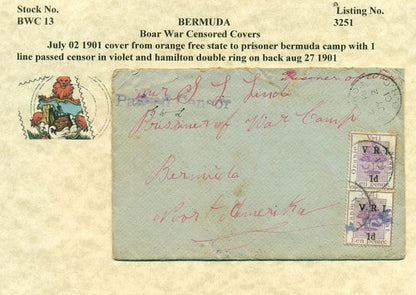 Stock No. BERMUDA Listing No.
BWC 13 Boar War Censored Covers 3251
July 02 1901 cover from orange free state to prisoner bermuda camp with 1
line passed censor in violet and hamilton double ring on back aug 27 1901
Prisoner of War
Passed Censor
Prisoner of War Camp
Bermuda
Noort Amerika
V.R.I.
1d
Een Penny
V.R.I.
1d
Een Penny